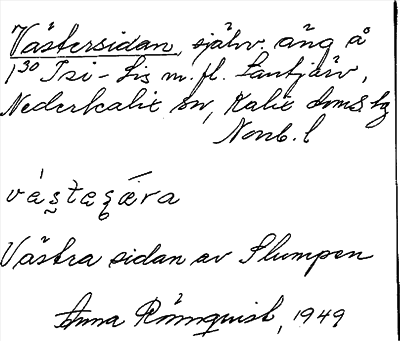 Västersidan, självv. äng å
1³⁰ Tsi-Lis m. fl. Lantjärv,
Nederkalix sn, Kalix doms. bg
Norrb. l
Västra sidan av Slumpen
Anna Rönnquist, 1949